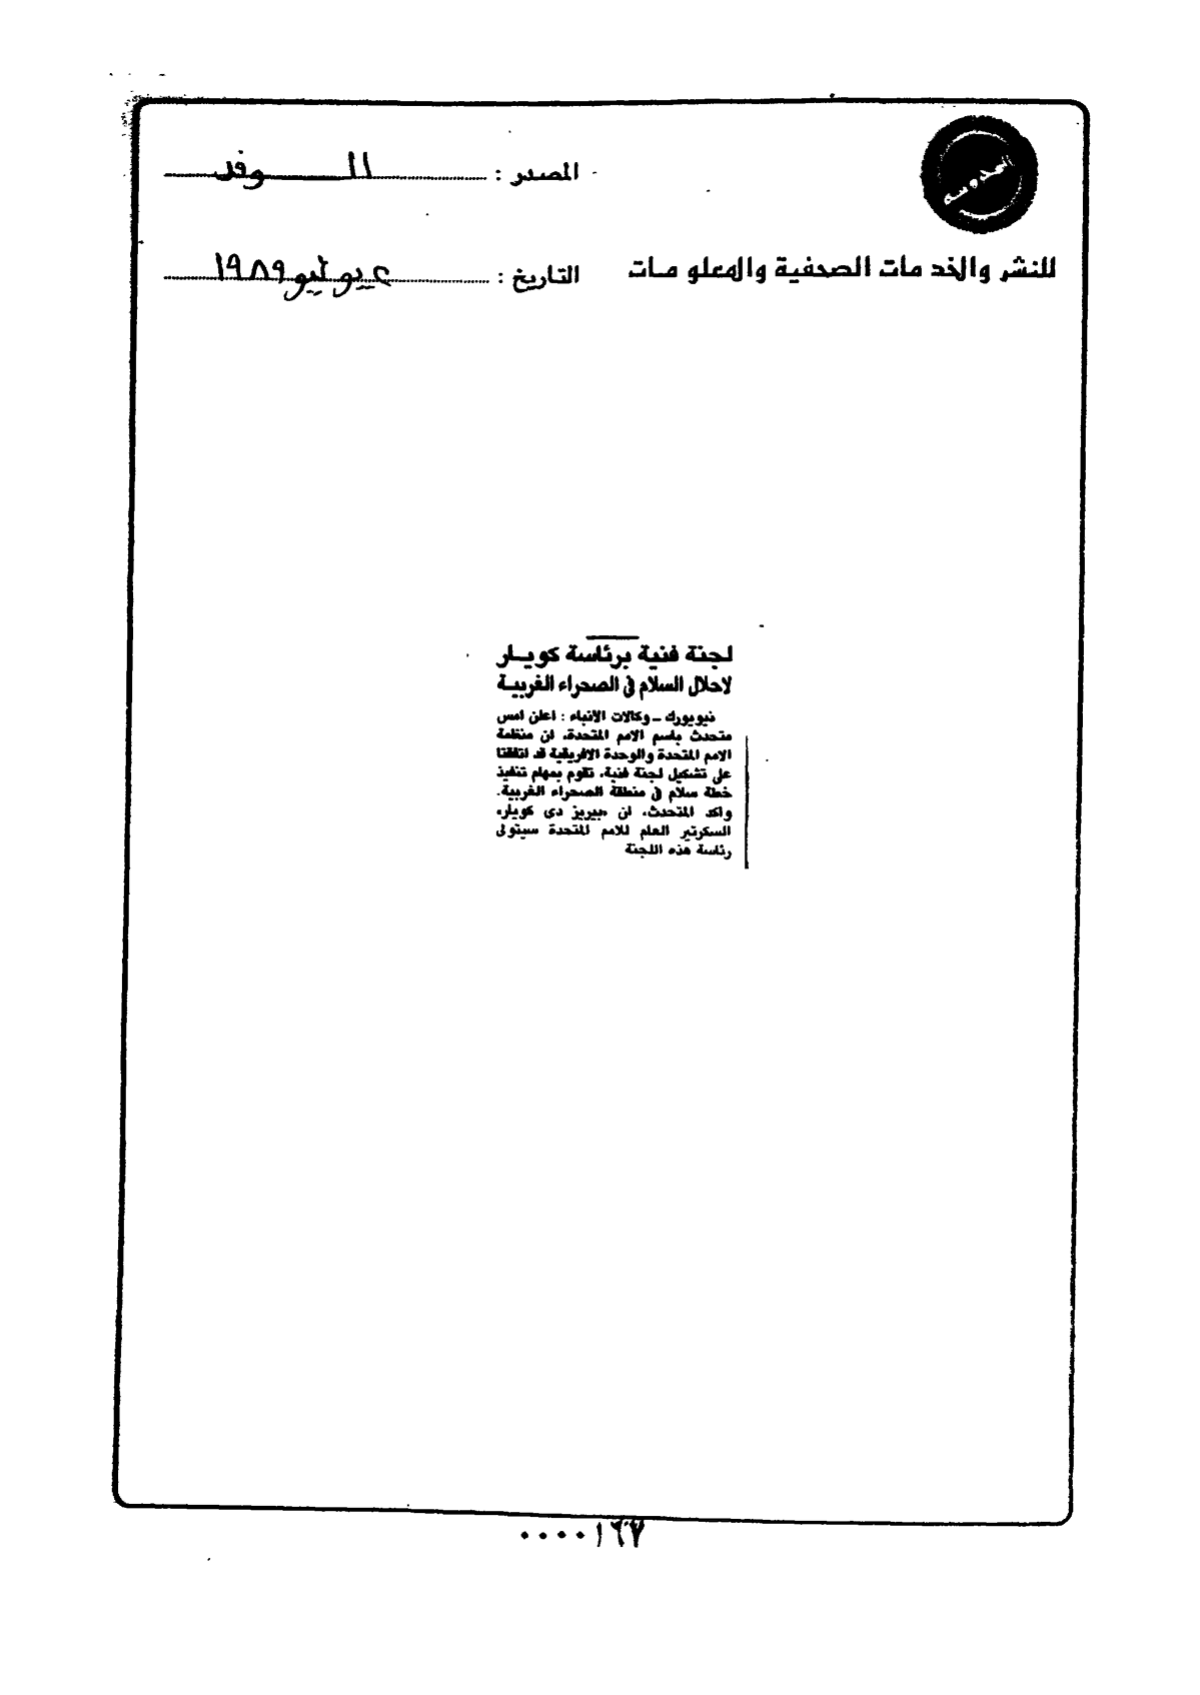 المصدر : الــوفد
للنشر والخدمات الصحفية والمعلومات
التاريخ : ٤ يوليو ١٩٨٩
لجنة فنية برئاسة كويـار
لاحلال السلام فى الصحراء الغربيـة
نيويورك ــ وكالات الأنباء : اعلن امس
متحدث باسم الامم المتحدة، ان منظمة
الامم المتحدة والوحدة الافريقية قد اتفقتا
على تشكيل لجنة فنية، تقوم بمهام تنفيذ
خطة سلام فى منطقة الصحراء الغربية.
واكد المتحدث، ان «بيريز دى كويلار»
السكرتير العام للامم المتحدة سيتولى
رئاسة هذه اللجنة
٠٠٠٠١٦٧